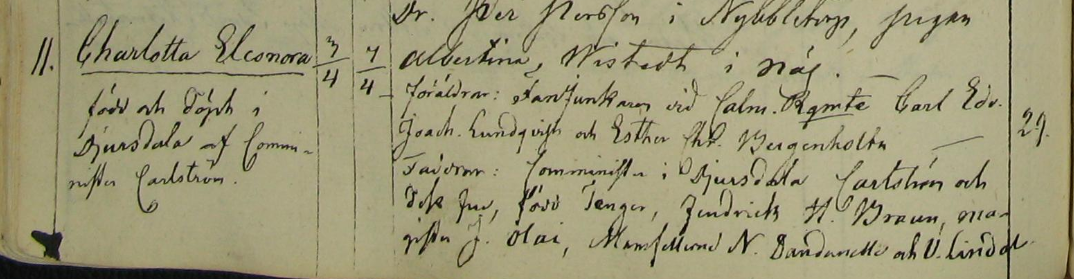 Dr. Per Persson i Nybbletorp, pigan
11. Charlotta Eleonora 3/4 7/4 Albertina Wistedt i näs.
född och döpt i
Djursdala af Commi-
nister Carlström.
Föräldrar: Fanjunkaren vid Calm. Rgmte Carl Edv.
Joach. Lundqvist och Esther Chr. Bergenholtz
29.
Faddrar: Comminister i Djursdala Carlström och
Dess fru, född Tenger, Hendrich H. Braun, ma-
gister J. Olai, Mamsellerne N. Dandanelle och U. Lindal